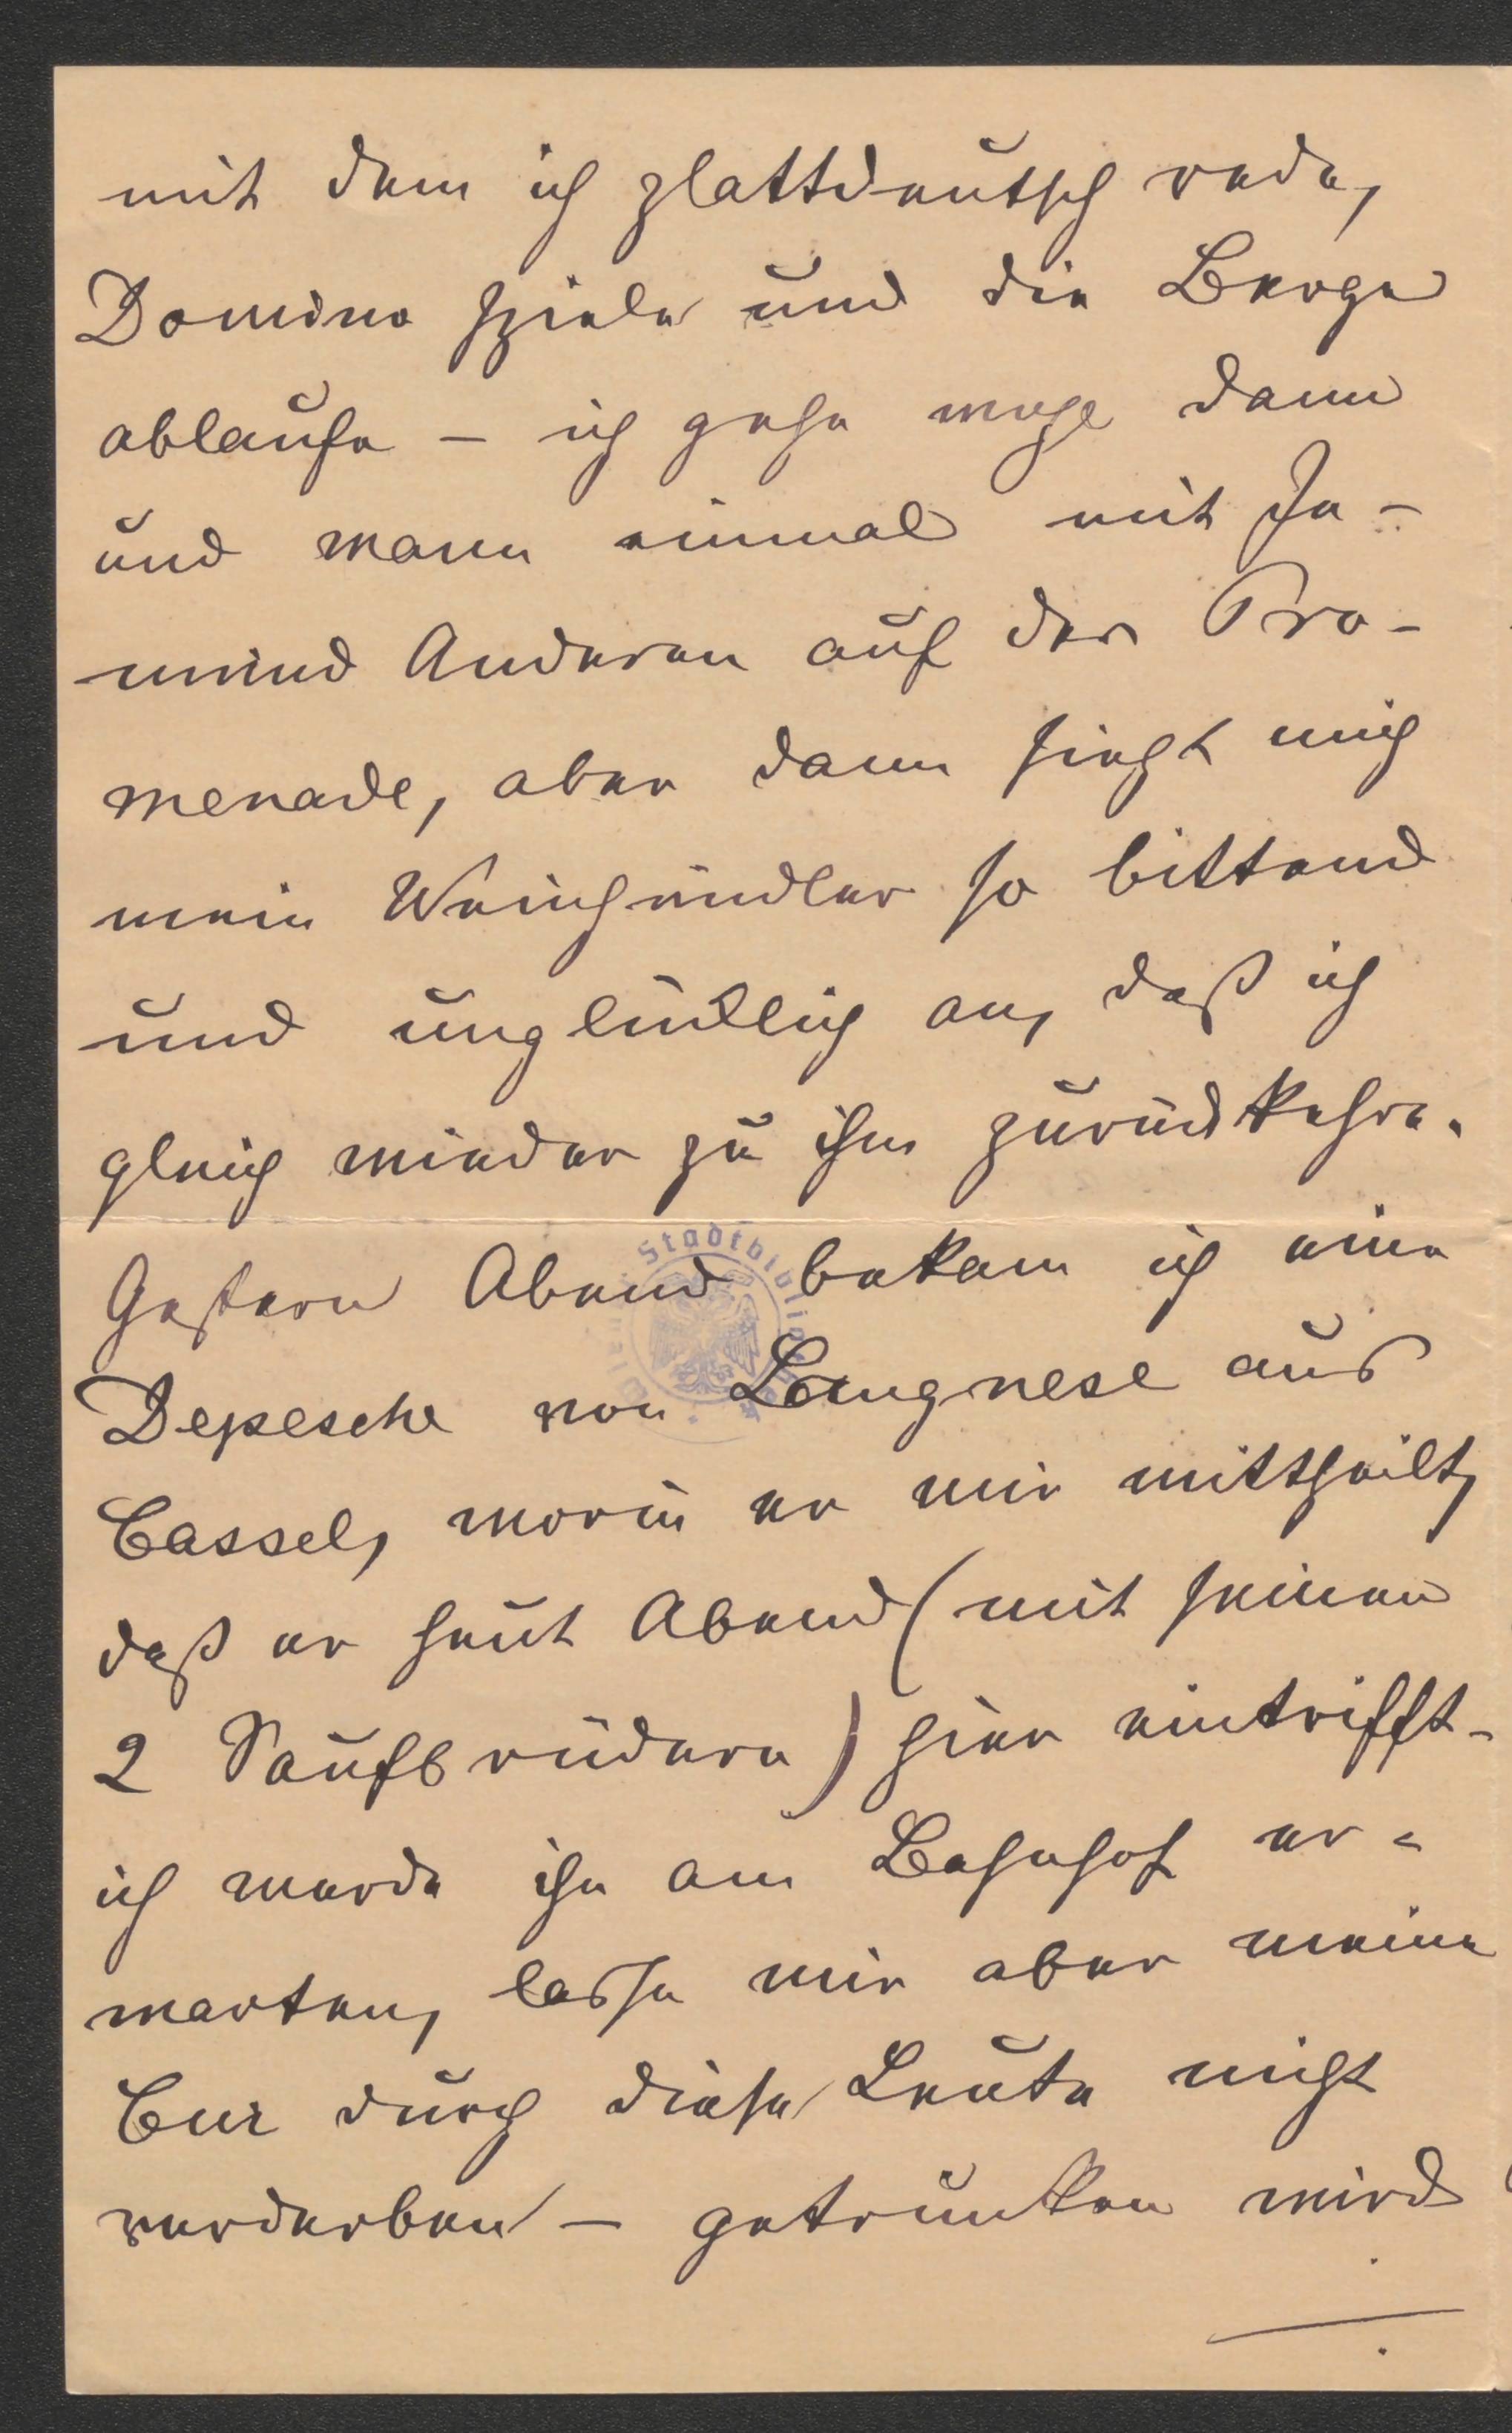 mit dem ich plattdeutsch rede,
Domino spiele und die Berge
ablaufe – ich gehe wohl dann
und wann einmal mit Je-
mand Anderen auf der Pro-
menade, aber dann sieht mich
mein Weinhändler so bittend
und unglücklich an, daß ich
gleich wieder zu ihm zurückkehre.
Gestern Abend bekam ich eine
Depesche von Langnese aus
Cassel, worin er mir mittheilt,
daß er heut Abend (mit seinen
2 Saufbrüdern) hier eintrifft –
ich werde ihn am Bahnhof er-
warten, lasse mir aber meine
Cur durch diese Leute nicht
verderben – getrunken wird
Stadtbibliothek